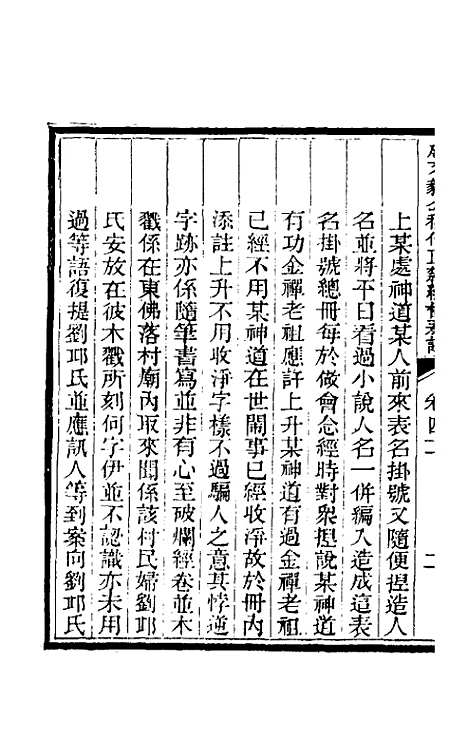 卷四十二
二
上某處神道某人前來表名掛號又隨便捏造人
名並將平日看過小說人名一併編入造成這表
名掛號總冊每於做會念經時對衆捏說某神道
有功金禪老祖應許上升某神道有過金禪老祖
已經不用某神道在世鬧事已經收淨故於冊內
添註上升不用收淨字樣不過騙人之意其悖逆
字跡亦係隨筆書寫並非有心至破爛經卷並木
戳係在東佛落村廟內取來聞係該村民婦劉邛
氏安放在彼木戳所刻何字伊並不認識亦未用
過等語復提劉邛氏並應訊人等到案向劉邛氏